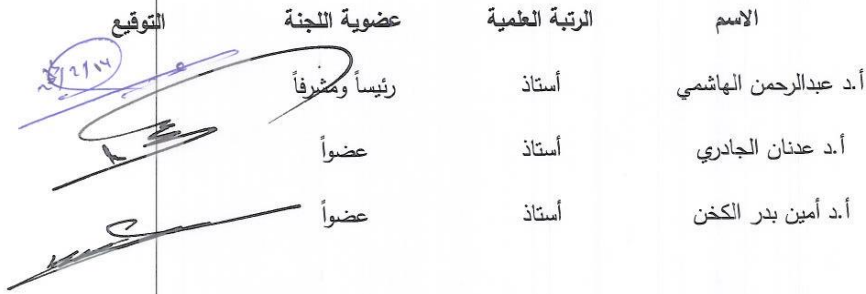 الاسم الرتبة العلمية عضوية اللجنة التوقيع
أ.د عبدالرحمن الهاشمي أستاذ رئيساً ومشرفاً
أ.د عدنان الجادري أستاذ عضواً
أ.د أمين بدر الكخن أستاذ عضواً